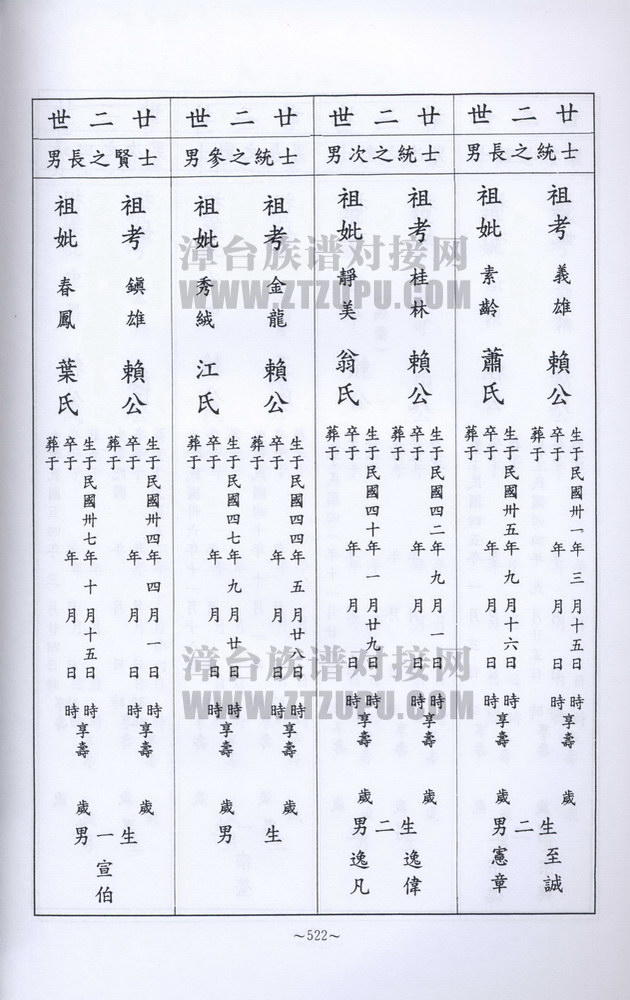 廿二世
士統之長男
祖考 義雄 賴公
生于民國卅一年三月十五日 時享壽 歲
卒于 年 月 日 時
葬于
祖妣 素齡 蕭氏
生于民國卅五年九月十六日 時享壽 歲
卒于 年 月 日 時
葬于
生二男
至誠
憲章
廿二世
士統之次男
祖考 桂林 賴公
生于民國四二年九月一日 時享壽 歲
卒于 年 月 日 時
葬于
祖妣 靜美 翁氏
生于民國四十年一月廿九日 時享壽 歲
卒于 年 月 日 時
葬于
生二男
逸偉
逸凡
廿二世
士統之參男
祖考 金龍 賴公
生于民國四四年五月廿八日 時享壽 歲
卒于 年 月 日 時
葬于
祖妣 秀絨 江氏
生于民國四七年九月廿日 時享壽 歲
卒于 年 月 日 時
葬于
生 男
廿二世
士賢之長男
祖考 鎮雄 賴公
生于民國卅四年四月一日 時享壽 歲
卒于 年 月 日 時
葬于
祖妣 春鳳 葉氏
生于民國卅七年十月十五日 時享壽 歲
卒于 年 月 日 時
葬于
生一男
宣伯
～522～
漳台族谱对接网
WWW.ZTZUPU.COM
漳台族谱对接网
WWW.ZTZUPU.COM